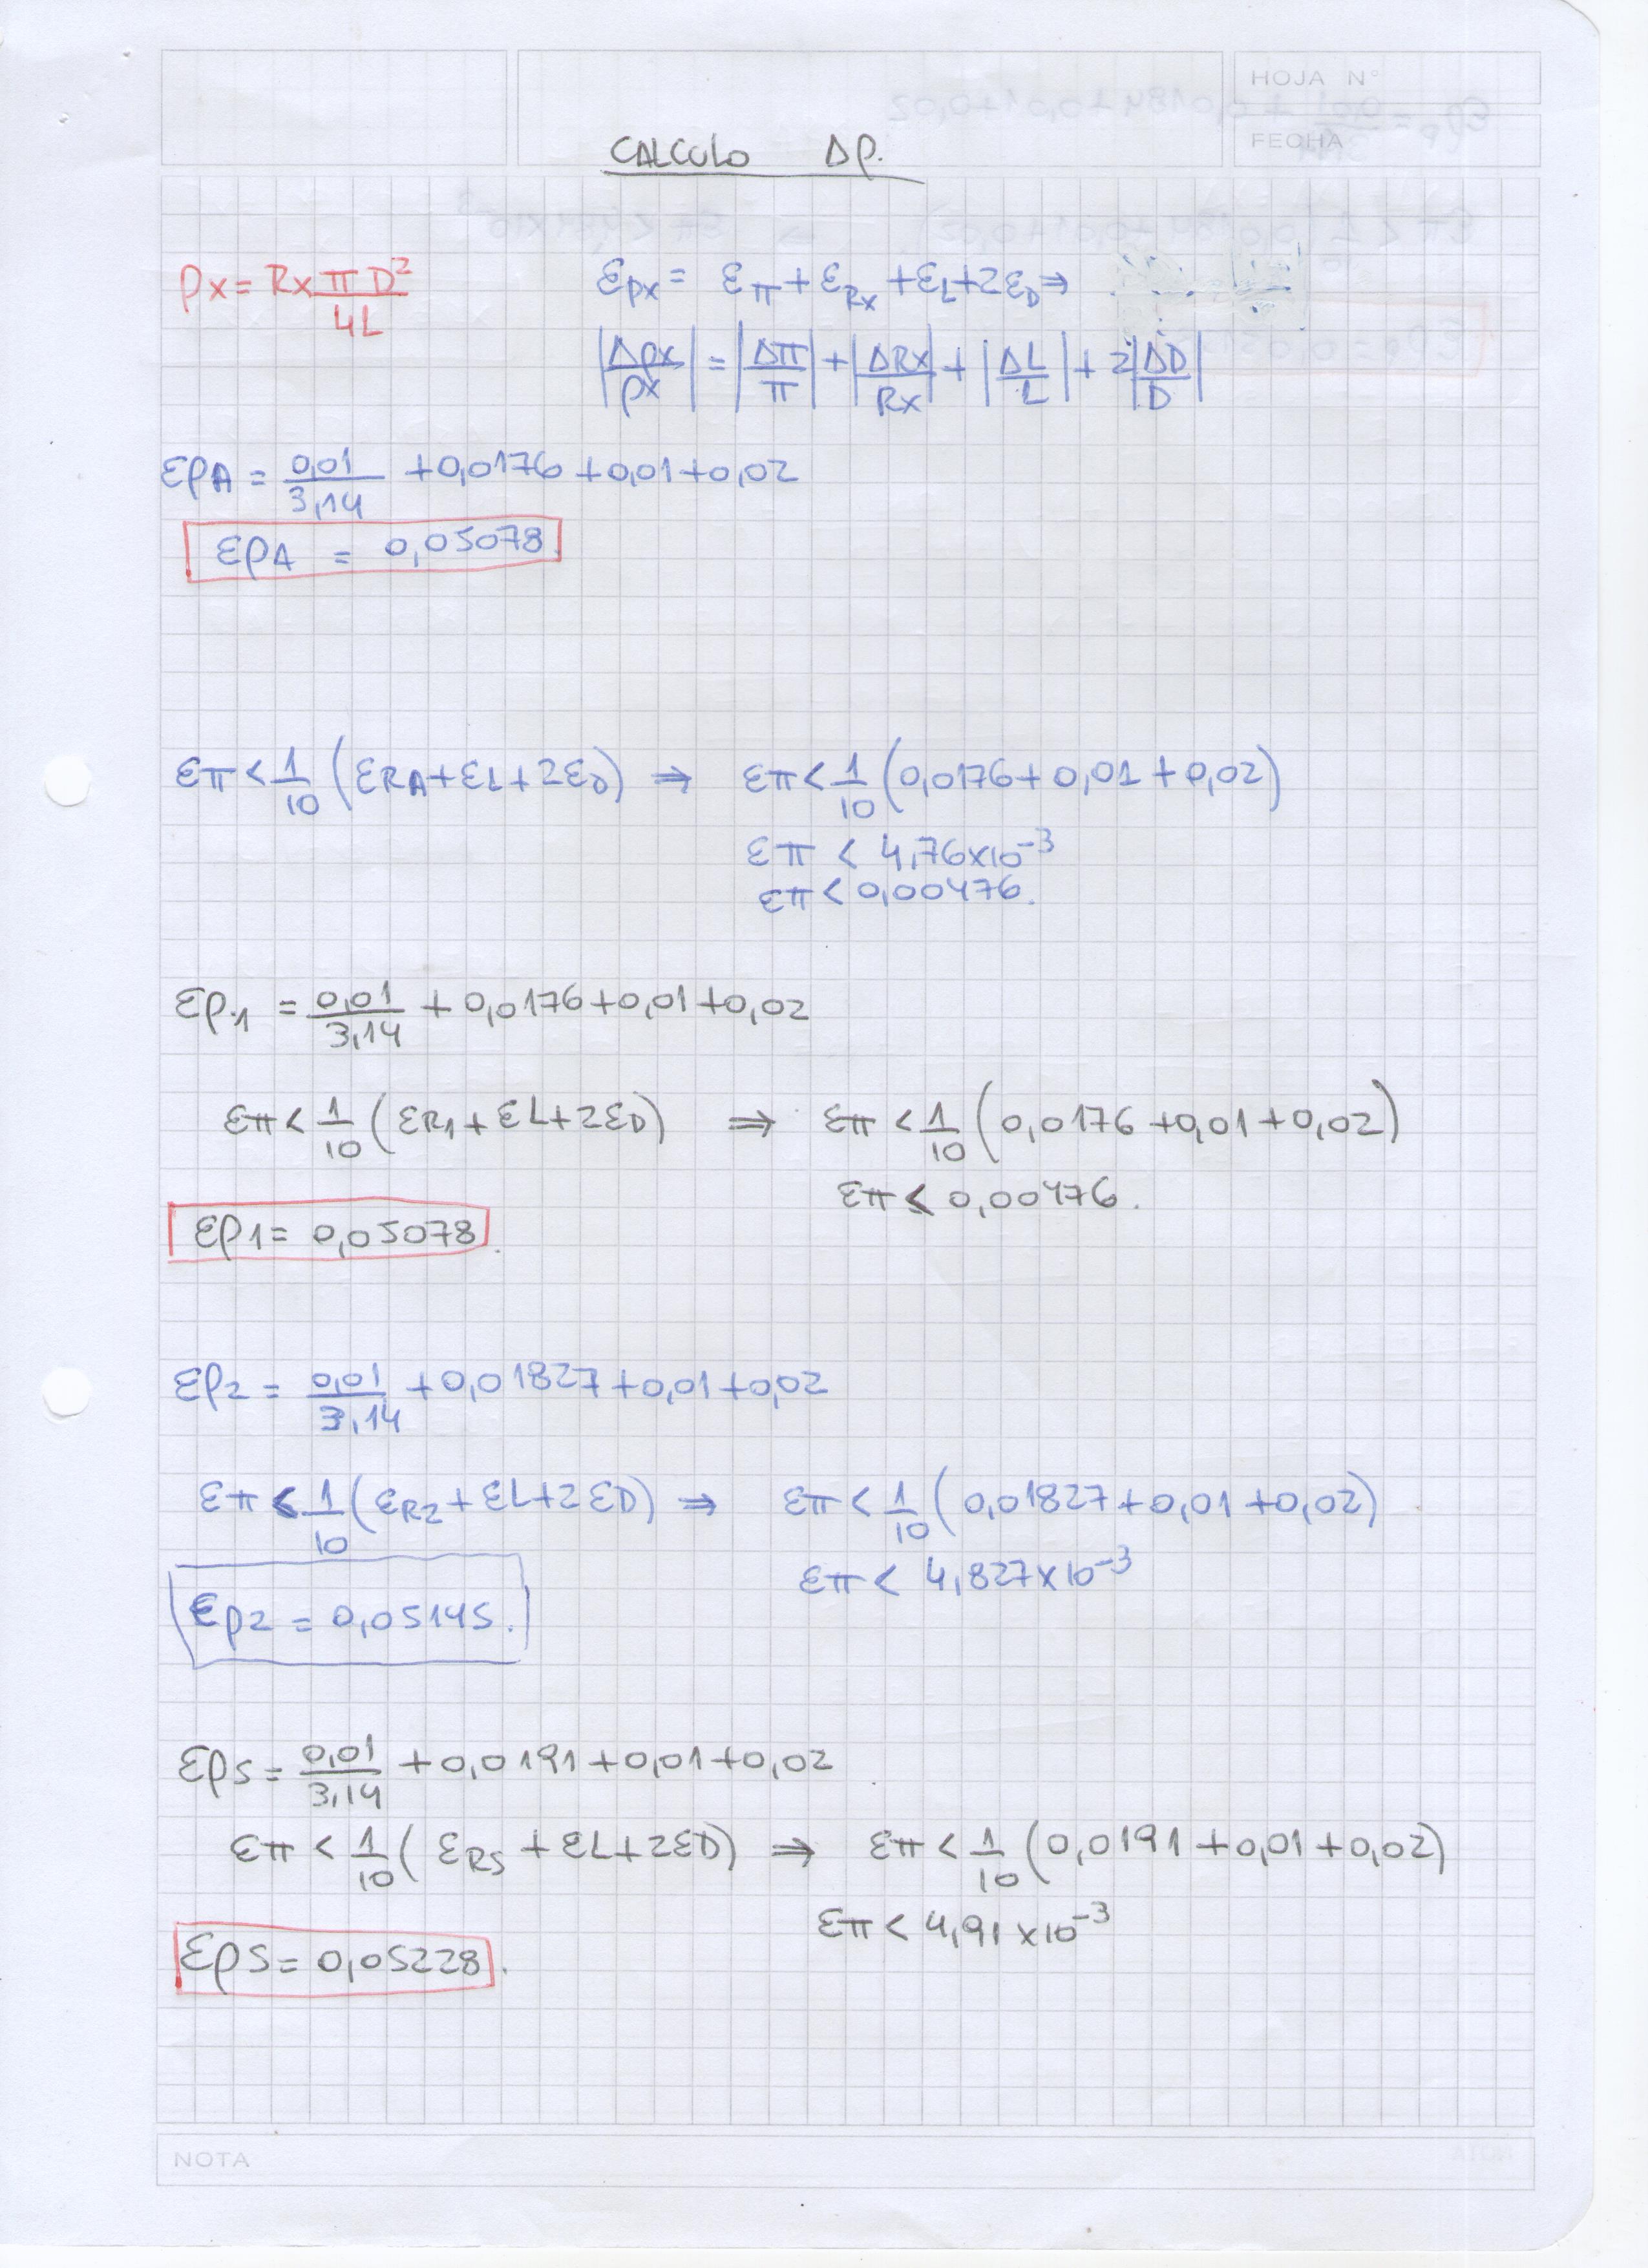 HOJA N°
FECHA
CALCULO Δρ.
ρx = Rx π D² / 4L
Ερx = Επ + ΕRx + ΕL + 2ΕD ⇒
|Δρx/ρx| = |Δπ/π| + |ΔRx/Rx| + |ΔL/L| + 2|ΔD/D|
ΕρA = 0,01/3,14 + 0,0176 + 0,01 + 0,02
ΕρA = 0,05078.
Επ < 1/10 (ΕRA + ΕL + 2ΕD) ⇒ Επ < 1/10 (0,0176 + 0,01 + 0,02)
Επ < 4,76x10⁻³
Επ < 0,00476.
Ερ1 = 0,01/3,14 + 0,0176 + 0,01 + 0,02
Επ < 1/10 (ΕR1 + ΕL + 2ΕD) ⇒ Επ < 1/10 (0,0176 + 0,01 + 0,02)
Επ < 0,00476.
Ερ1 = 0,05078.
Ερ2 = 0,01/3,14 + 0,01827 + 0,01 + 0,02
Επ < 1/10 (ΕR2 + ΕL + 2ΕD) ⇒ Επ < 1/10 (0,01827 + 0,01 + 0,02)
Επ < 4,827x10⁻³
Ερ2 = 0,05145.
Ερ5 = 0,01/3,14 + 0,0191 + 0,01 + 0,02
Επ < 1/10 (ΕR5 + ΕL + 2ΕD) ⇒ Επ < 1/10 (0,0191 + 0,01 + 0,02)
Επ < 4,91x10⁻³
Ερ5 = 0,05228.
NOTA